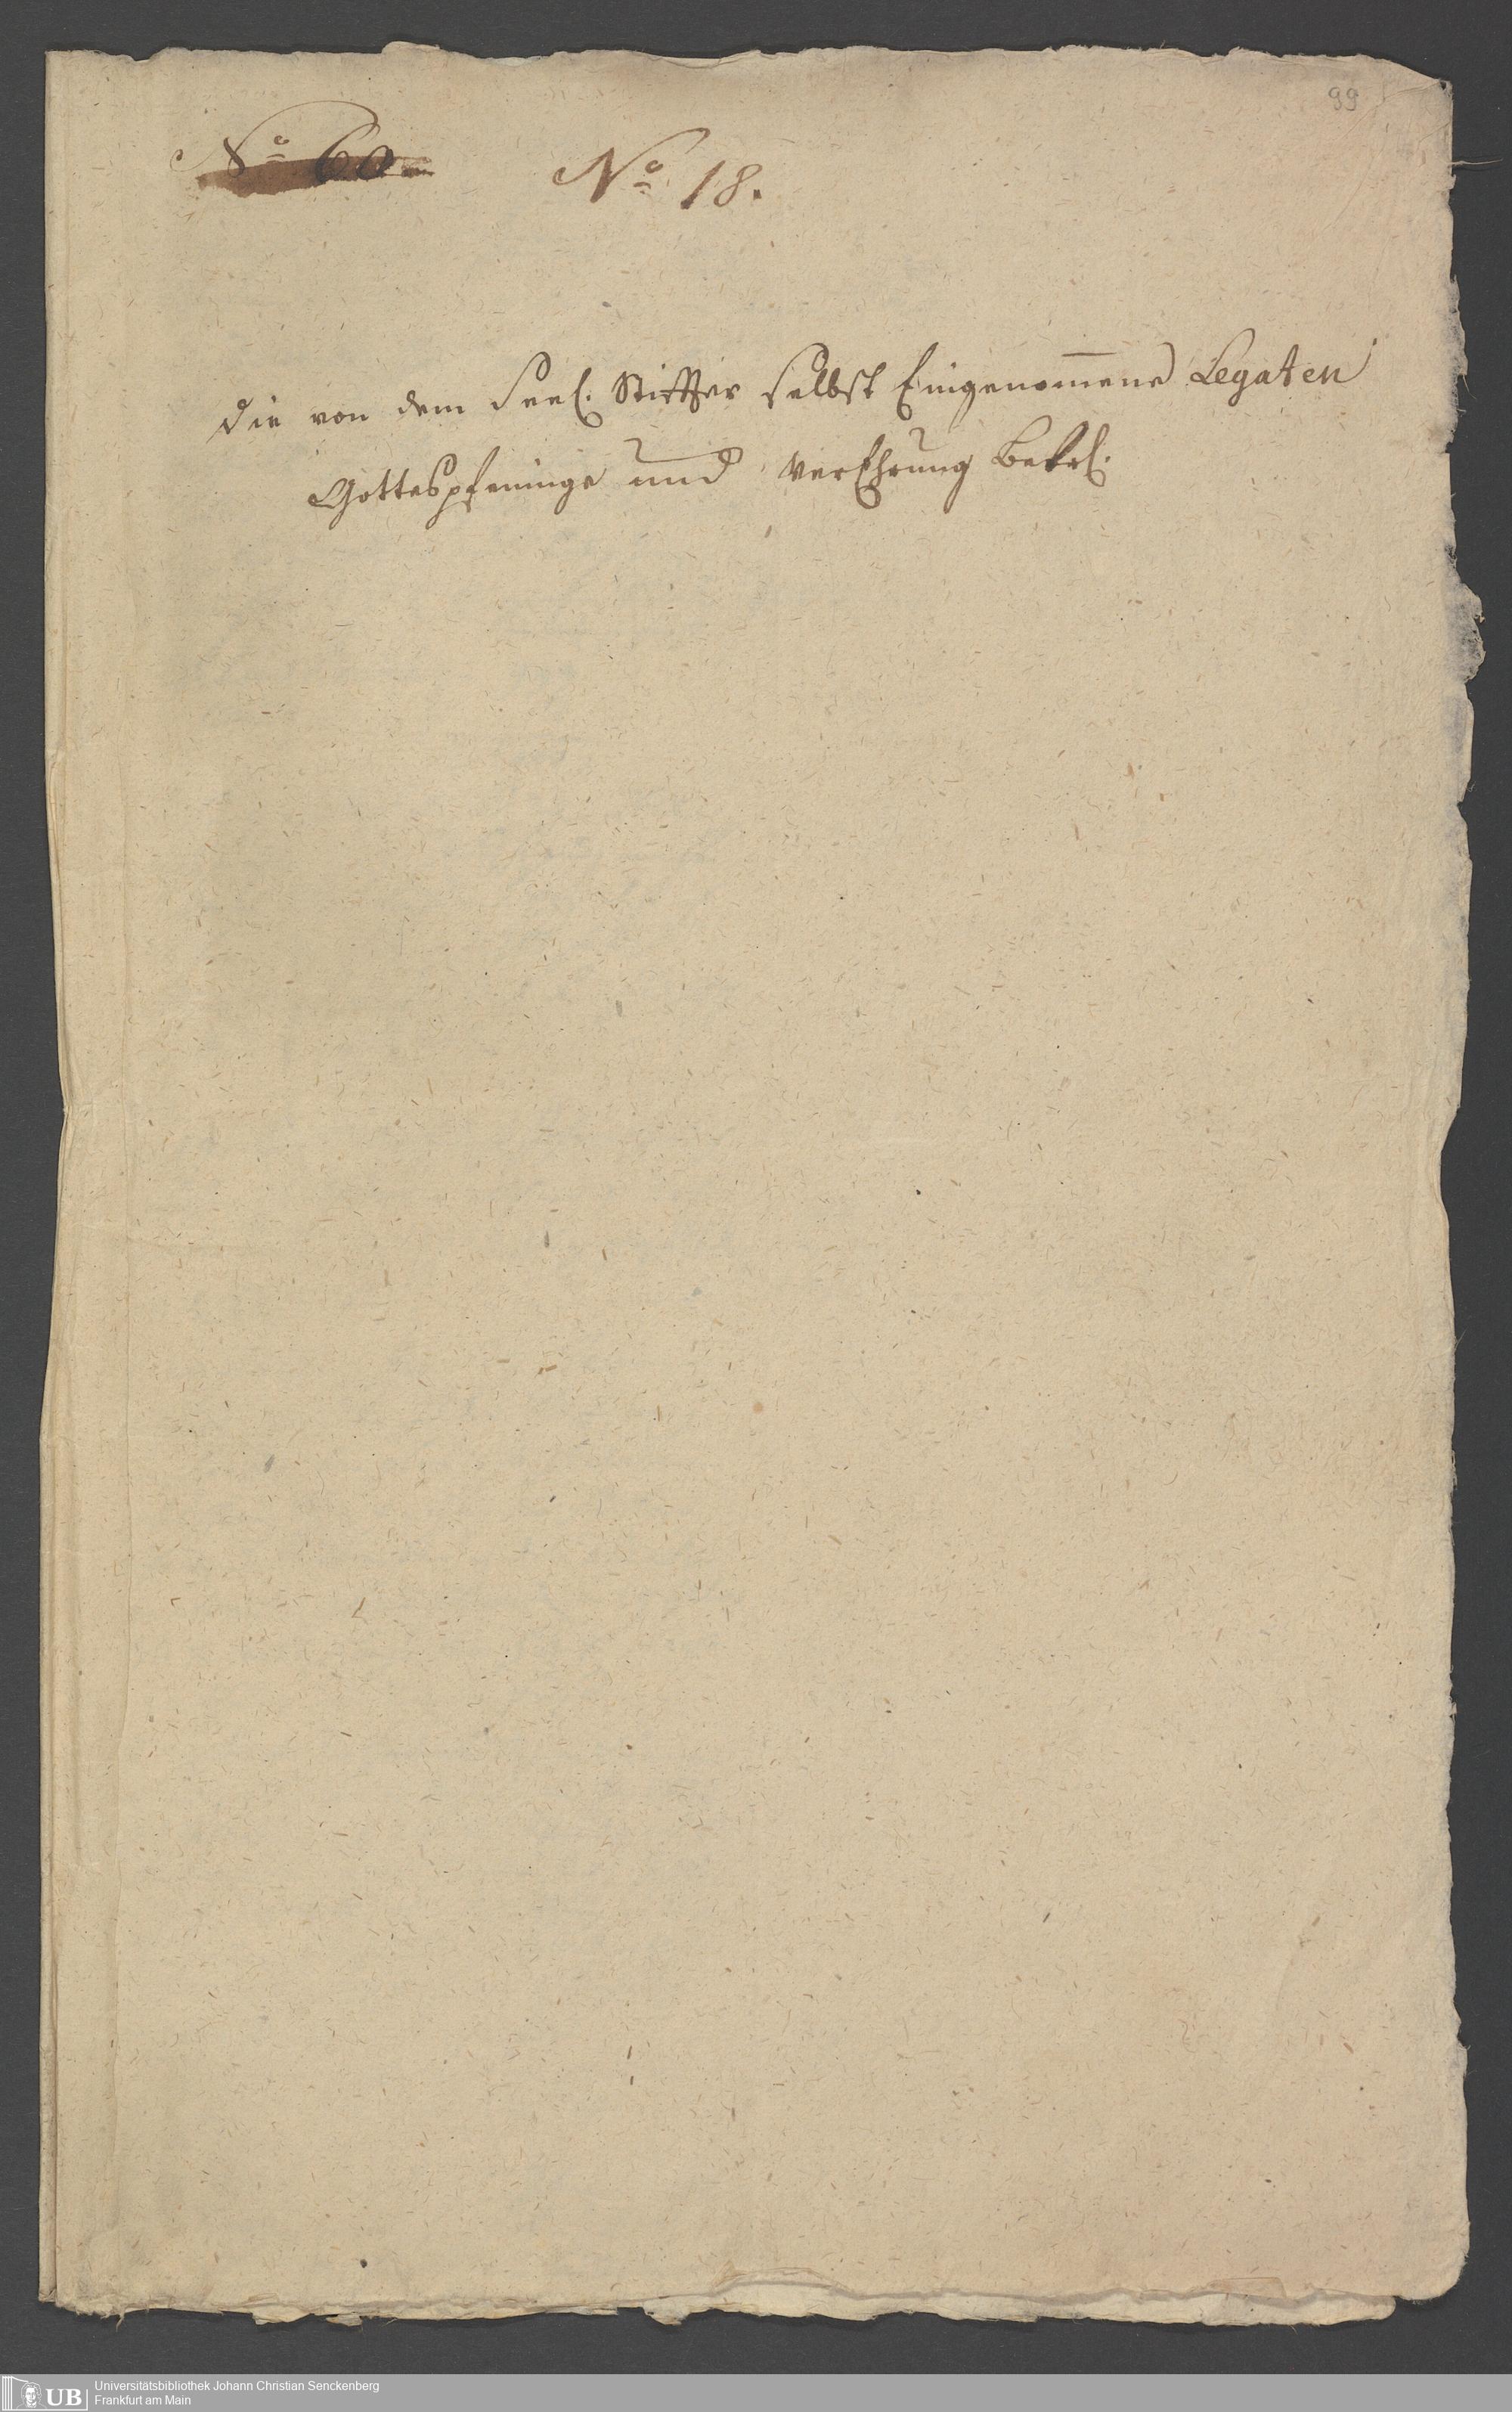 99
No 60
No 18.
Die von dem Seel. Stiffter selbst Eingenom̅ene Legaten
Gottespfeninge und VerEhrung Betrl.
UB
Universitätsbibliothek Johann Christian Senckenberg
Frankfurt am Main